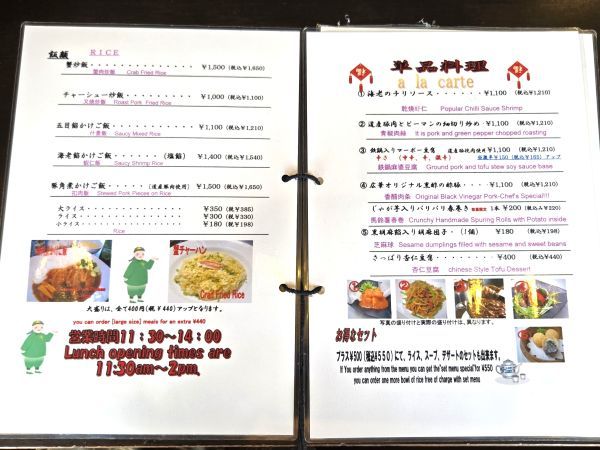 飯類 RICE
蟹炒飯・・・・・・・・・・ ¥1,500 (税込¥1,650)
蟹肉炒飯 Crab Fried Rice
チャーシュー炒飯・・・・・・・ ¥1,000 (税込¥1,100)
叉焼炒飯 Roast Pork Fried Rice
五目餡かけご飯・・・・・・・・ ¥1,100 (税込¥1,210)
什錦飯 Saucy Mixed Rice
海老餡かけご飯・・・・・(塩餡) ¥1,400 (税込¥1,540)
蝦仁飯 Saucy Shrimp Rice
豚角煮かけご飯・・・・(道産豚肉使用) ¥1,500 (税込¥1,650)
扣肉飯 Stewed Pork Pieces on Rice
大ライス・・・・・・・・・ ¥350 (税¥385)
ライス・・・・・・・・・・ ¥300 (税¥330)
小ライス・・・・・・・・・ ¥180 (税¥198)
Rice
蟹チャーハン
Crab Fried Rice
大盛りは、全て400円(税¥440)アップとなります。
you can order [large size] meals for an extra ¥440
営業時間11:30~14:00
Lunch opening times are
11:30am~2pm.
単品料理
a la carte
①海老のチリソース・・・・・・・ ¥1,100 (税込¥1,210)
乾焼蝦仁 Popular Chilli Sauce Shrimp
②道産豚肉とピーマンの細切り炒め・¥1,100 (税込¥1,210)
青椒肉絲 It is pork and green pepper chopped roasting
③鉄鍋入りマーボー豆腐 道産豚挽肉使用 ¥1,100 (税込¥1,210)
辛さ (中辛、辛、激辛) 各激辛¥150 (税込¥165) アップ
鉄鍋麻婆豆腐 Ground pork and tofu stew soy sauce base
④広華オリジナル黒酢の酢豚・・・・¥1,100 (税込¥1,210)
香醋肉条 Original Black Vinegar Pork-Chef's Special!!!
じゃが芋入りパリパリ春巻き 1本 ¥200 (税込¥220)
馬鈴薯春巻 Crunchy Handmade Spuring Rolls with Potato inside
⑤黒胡麻餡入り胡麻団子・(1個) ¥180 (税込¥198)
芝麻球 Sesame dumplings filled with sesame and sweet beans
さっぱり杏仁豆腐・・・・・・ ¥400 (税込¥440)
杏仁豆腐 chinese Style Tofu Dessert
写真の盛り付けと実際の盛り付けは、異なります。
お得なセット
プラス¥500(税込¥550)にて、ライス、スープ、デザートのセットも出来ます。
!!! You order anything from the menu you can get the"set menu special"for ¥550
you can order one more bowl of rice free of charge with set menu